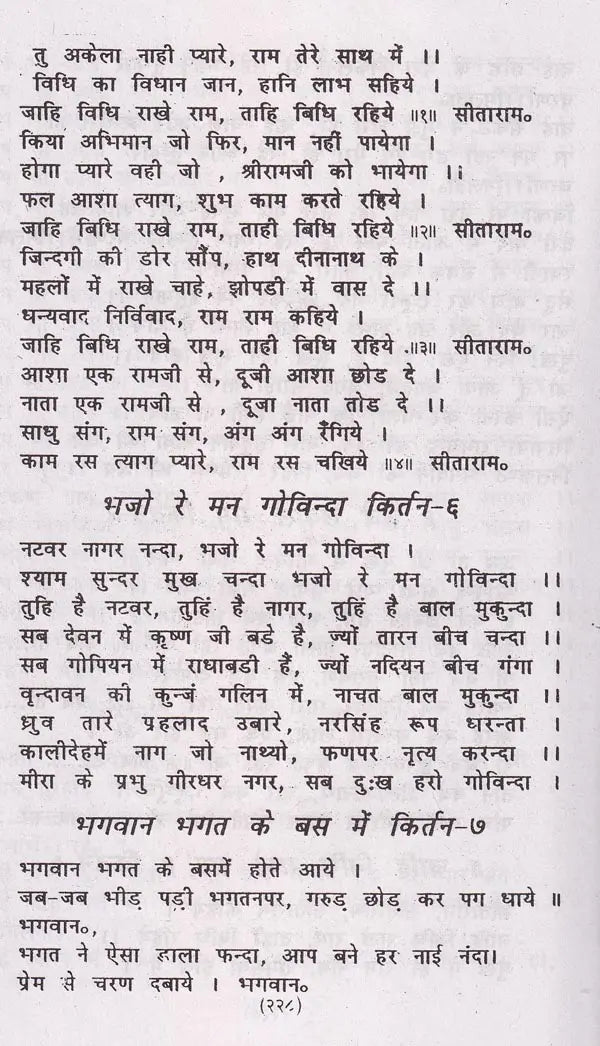 तु अकेला नाही प्यारे, राम तेरे साथ में ।।
विधि का विधान जान, हानि लाभ सहिये ।
जाहि विधि राखे राम, ताहि बिधि रहिये ॥१॥ सीताराम॰
किया अभिमान जो फिर, मान नहीं पायेगा ।
होगा प्यारे वही जो , श्रीरामजी को भायेगा ।।
फल आशा त्याग, शुभ काम करते रहिये ।
जाहि बिधि राखे राम, ताही बिधि रहिये ॥२॥ सीताराम॰
जिन्दगी की डोर सौंप, हाथ दीनानाथ के ।
महलों में राखे चाहे, झोपडी में वास दे ।।
धन्यवाद निर्विवाद, राम राम कहिये ।
जाहि बिधि राखे राम, ताही बिधि रहिये ॥३॥ सीताराम॰
आशा एक रामजी से, दूजी आशा छोड दे ।
नाता एक रामजी से , दूजा नाता तोड दे ।।
साधु संग, राम संग, अंग अंग रँगिये ।
काम रस त्याग प्यारे, राम रस चखिये ॥४॥ सीताराम॰
भजो रे मन गोविन्दा किर्तन-६
नटवर नागर नन्दा, भजो रे मन गोविन्दा ।
श्याम सुन्दर मुख चन्दा भजो रे मन गोविन्दा ।।
तुहि है नटवर, तुहिं है नागर, तुहिं है बाल मुकुन्दा ।
सब देवन में कृष्ण जी बडे है, ज्यों तारन बीच चन्दा ।।
सब गोपियन में राधाबडी हैं, ज्यों नदियन बीच गंगा ।
वृन्दावन की कुन्जं गलिन में, नाचत बाल मुकुन्दा ।।
ध्रुव तारे प्रहलाद उबारे, नरसिंह रूप धरन्ता ।
कालीदेहमें नाग जो नाथ्यो, फणपर नृत्य करन्दा ।।
मीरा के प्रभु गीरधर नगर, सब दुःख हरो गोविन्दा ।
भगवान भगत के बस में किर्तन-७
भगवान भगत के बसमें होते आये ।
जब-जब भीड़ पड़ी भगतनपर, गरुड़ छोड़ कर पग धाये ॥
भगवान॰,
भगत ने ऐसा डाला फन्दा, आप बने हर नाई नंदा।
प्रेम से चरण दबाये । भगवान॰
(२२८)